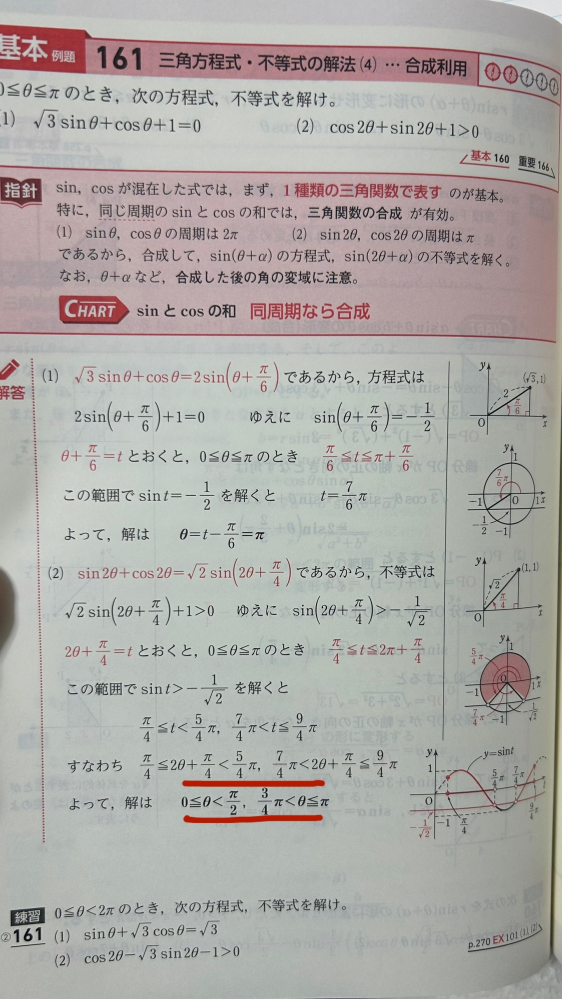 基本 例題 161 三角方程式・不等式の解法(4) … 合成利用
0≦θ≦πのとき，次の方程式，不等式を解け。
(1) √3 sinθ+cosθ+1=0 (2) cos2θ+sin2θ+1>0
基本 160 重要 166
指針 sin，cos が混在した式では，まず，1種類の三角関数で表す のが基本。
特に，同じ周期の sin と cos の和では，三角関数の合成 が有効。
(1) sinθ，cosθ の周期は 2π (2) sin2θ，cos2θ の周期は π
であるから，合成して，sin(θ+α) の方程式，sin(2θ+α) の不等式を解く。
なお，θ+α など，合成した後の角の変域に注意。
CHART sin と cos の和 同周期なら合成
解答
(1) √3 sinθ+cosθ=2sin(θ+π/6) であるから，方程式は
2sin(θ+π/6)+1=0 ゆえに sin(θ+π/6)=-1/2
θ+π/6=t とおくと，0≦θ≦π のとき π/6≦t≦π+π/6
この範囲で sint=-1/2 を解くと t=7/6π
よって，解は θ=t-π/6=π
(2) sin2θ+cos2θ=√2 sin(2θ+π/4) であるから，不等式は
√2 sin(2θ+π/4)+1>0 ゆえに sin(2θ+π/4)>-1/√2
2θ+π/4=t とおくと，0≦θ≦π のとき π/4≦t≦2π+π/4
この範囲で sint>-1/√2 を解くと
π/4≦t<5/4π，7/4π<t≦9/4π
すなわち π/4≦2θ+π/4<5/4π，7/4π<2θ+π/4≦9/4π
よって，解は 0≦θ<π/2，3/4π<θ≦π
y
(√3, 1)
2
π/6
0
x
y
1
7/6π
-1
O
1
x
-1/2
-1
y
(1, 1)
√2
π/4
0
x
y
5/4π
1
O
-1
1
x
7/4π
-1
-1/√2
y
y=sint
1
5/4π
7/4π
O
t
-1
π/4
9/4π
-1/√2
練習 0≦θ<2π のとき，次の方程式，不等式を解け。
②161 (1) sinθ+√3 cosθ=√3
(2) cos2θ-√3 sin2θ-1>0
p.270 EX 101 (1), (2)